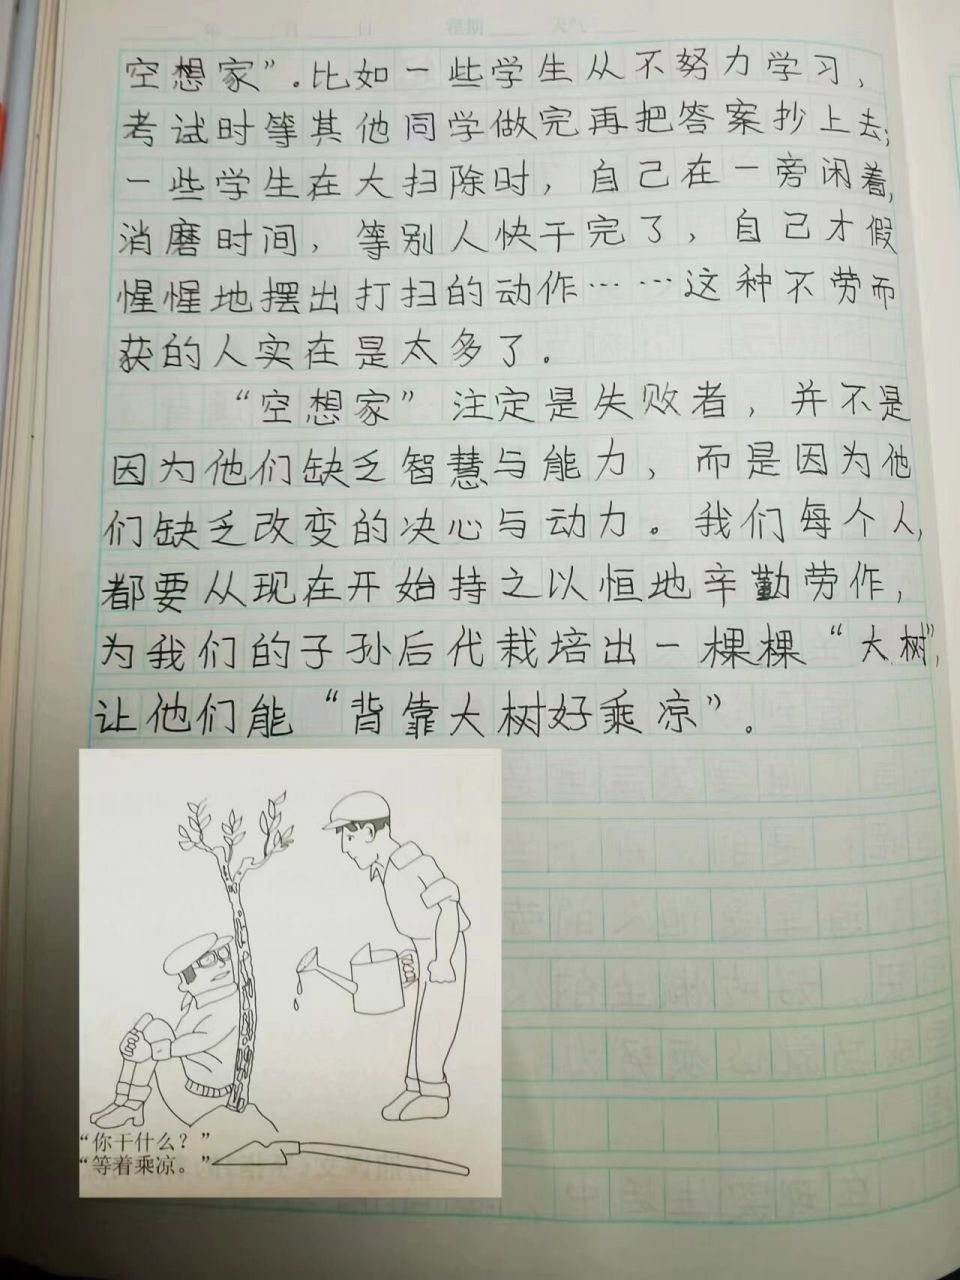 年 月 日 星期 天气
空想家”.比如一些学生从不努力学习，
考试时等其他同学做完再把答案抄上去；
一些学生在大扫除时，自己在一旁闲着，
消磨时间，等别人快干完了，自己才假
惺惺地摆出打扫的动作……这种不劳而
获的人实在是太多了。
“空想家”注定是失败者，并不是
因为他们缺乏智慧与能力，而是因为他
们缺乏改变的决心与动力。我们每个人，
都要从现在开始持之以恒地辛勤劳作，
为我们的子孙后代栽培出一棵棵“大树”，
让他们能“背靠大树好乘凉”。
“你干什么？”
“等着乘凉。”